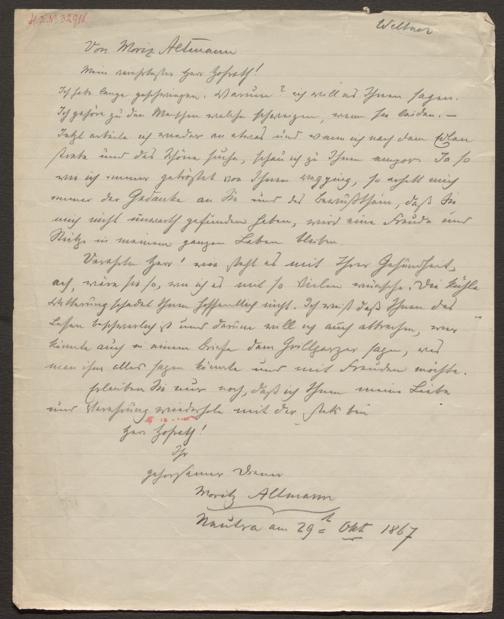 H.I.N. 32916
Weltner
Von Moriz Altmann
Mein verehrtester Herr Hofrath!
Ich habe lange geschwiegen. Warum? ich will es Ihnen sagen.
Ich gehöre zu den Menschen welche schweigen, wenn sie leiden. —
Jetzt arbeite ich wieder an etwas und wenn ich nach dem
strebe und das Schöne suche, schau ich zu Ihnen empor. Ja so
wie ich immer getröstet von Ihnen wegging, so erhält mich
immer der Gedanke an Sie und das Bewußtsein, daß Sie
mich nicht unwerth gefunden haben, wird eine Freude und
Stütze in meinem ganzen Leben bleiben.
Verehrter Herr! wie steht es mit Ihrer Gesundheit,
ach, wäre sie so, wie ich es mit so Vielen wünsche. Die kühle
Witterung schadet Ihnen hoffentlich nicht. Ich weiß daß Ihnen das
Lesen beschwerlich ist und darum will ich auch abbrechen, wer
könnte auch in einem Briefe dem Grillparzer sagen, was
man ihm alles sagen könnte und mit Freuden möchte.
Erlauben Sie nur noch, daß ich Ihnen meine Liebe
und Verehrung wiederhole mit der stets bin
Herr Hofrath!
Ihr
gehorsamer Diener
Moritz Altmann
Neutra am 29t Okt 1867